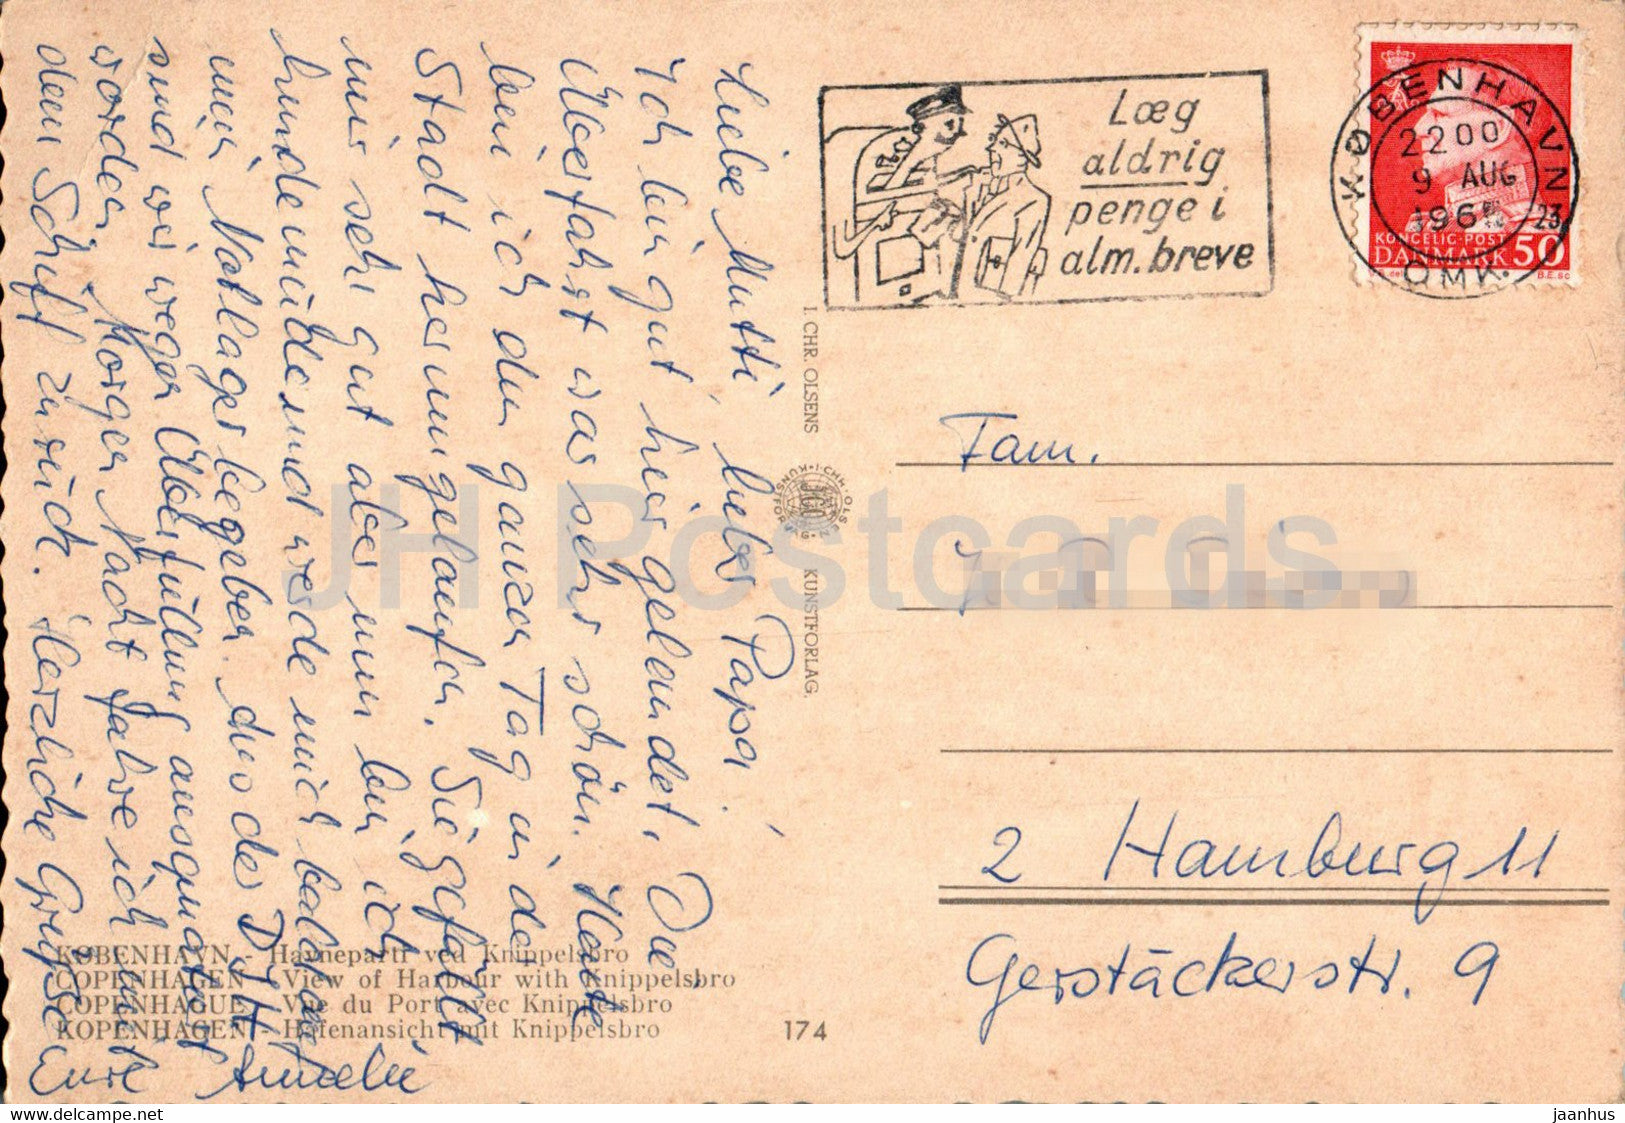 Liebe Mutti, lieber Papa!
Ich bin gut hier gelandet. Die
Überfahrt war sehr schön. Heute
bin ich den ganzen Tag in der
Stadt herumgelaufen. Sie gefällt
mir sehr gut aber nun bin ich
hundemüde und werde mich bald auf
mein Notlager begeben. Aus der DJH
sind wir wegen Überfüllung ausquartiert
worden. Morgen Nacht fahre ich mit
dem Schiff zurück. Herzliche Grüße
Eure Amelie
Læg
aldrig
penge i
alm. breve
KØBENHAVN
2200
9 AUG
196
23
OMK.
KONGELIG·POST
DANMARK 50
B.E. sc
I. CHR. OLSENS KUNSTFORLAG.
Fam.
2 Hamburg 11
Gerstäckerstr. 9
KØBENHAVN - Havneparti ved Knippelsbro
COPENHAGEN - View of Harbour with Knippelsbro
COPENHAGUE - Vue du Port avec Knippelsbro
KOPENHAGEN - Hafenansicht mit Knippelsbro
174
JH Postcards
www.delcampe.net
jaanhus